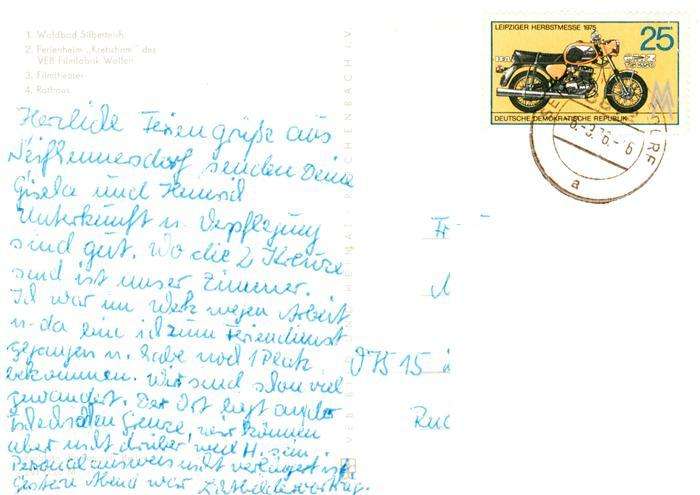 1. Waldbad Silberteich
2. Ferienheim „Kretscham“ des
VEB Filmfabrik Wolfen
3. Filmtheater
4. Rathaus
Herzliche Feriengrüße aus
Seifhennersdorf senden Deine
Gisela und Heinrich
Unterkunft u. Verpflegung
sind gut. Wo die 2 Kreuze
sind ist unser Zimmer.
Ich war im Werk wegen Arbeit
u. da bin ich zum Feriendienst
gegangen u. habe noch 1 Platz
bekommen. Wir sind schon viel
gewandert. Der Ort liegt an der
tschechischen Grenze, wir können
aber nicht drüber weil H. sein
Personalausweis nicht verlängert ist.
Gestern Abend war Lichtbildervortrag.
LEIPZIGER HERBSTMESSE 1975
25
DEUTSCHE DEMOKRATISCHE REPUBLIK
MZ
TS 250
a